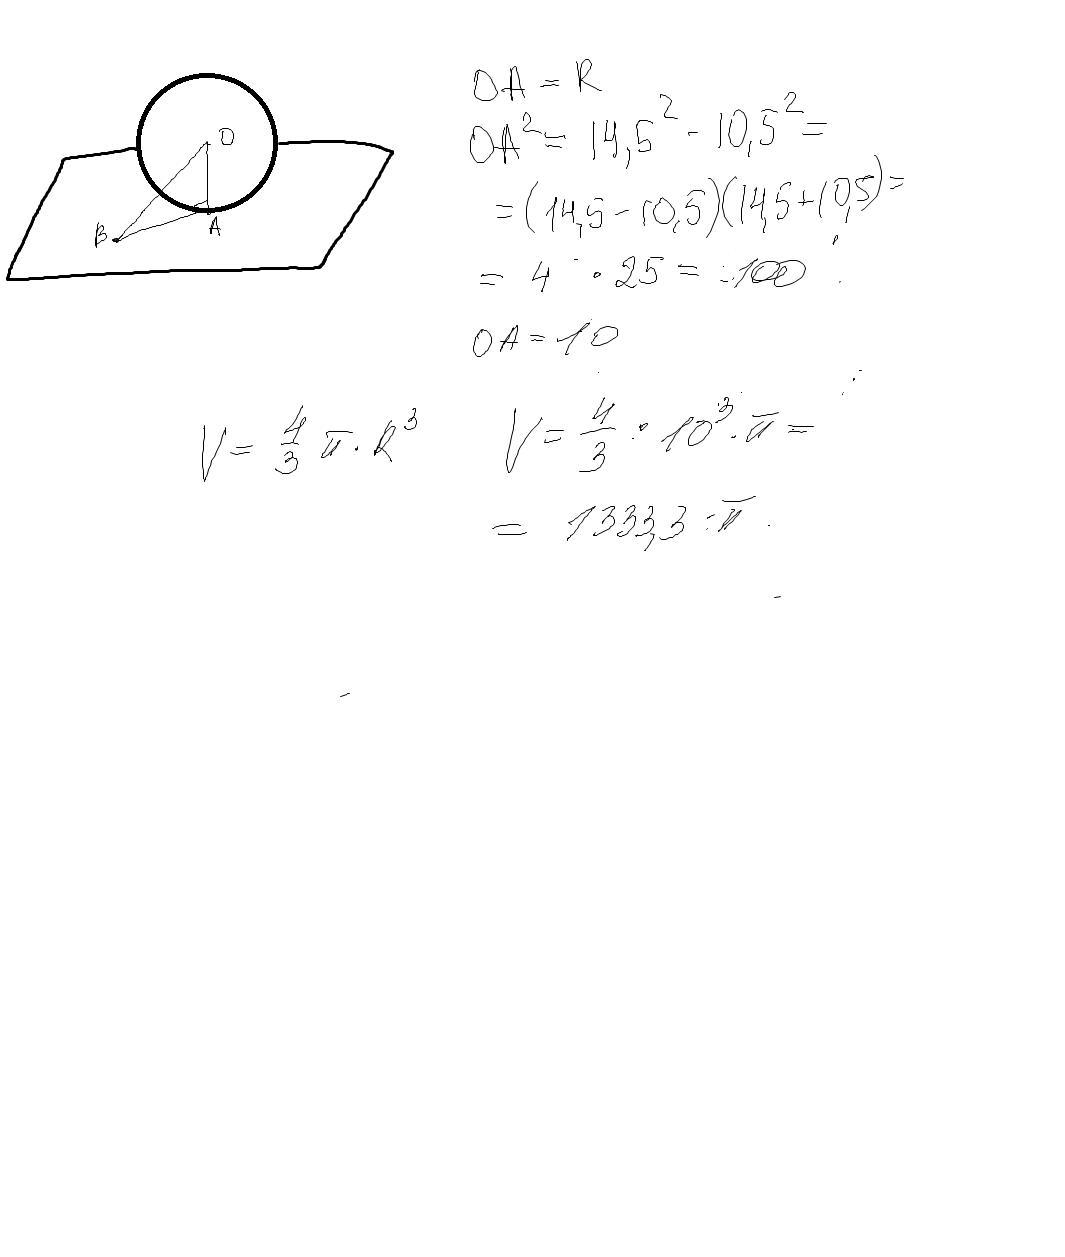 O
B
A
OA = R
OA² = 14,5² - 10,5² =
= (14,5 - 10,5)(14,5 + 10,5) =
= 4 · 25 = 100
OA = 10
V = 4/3 π · R³
V = 4/3 · 10³ · π =
= 1333,3 · π